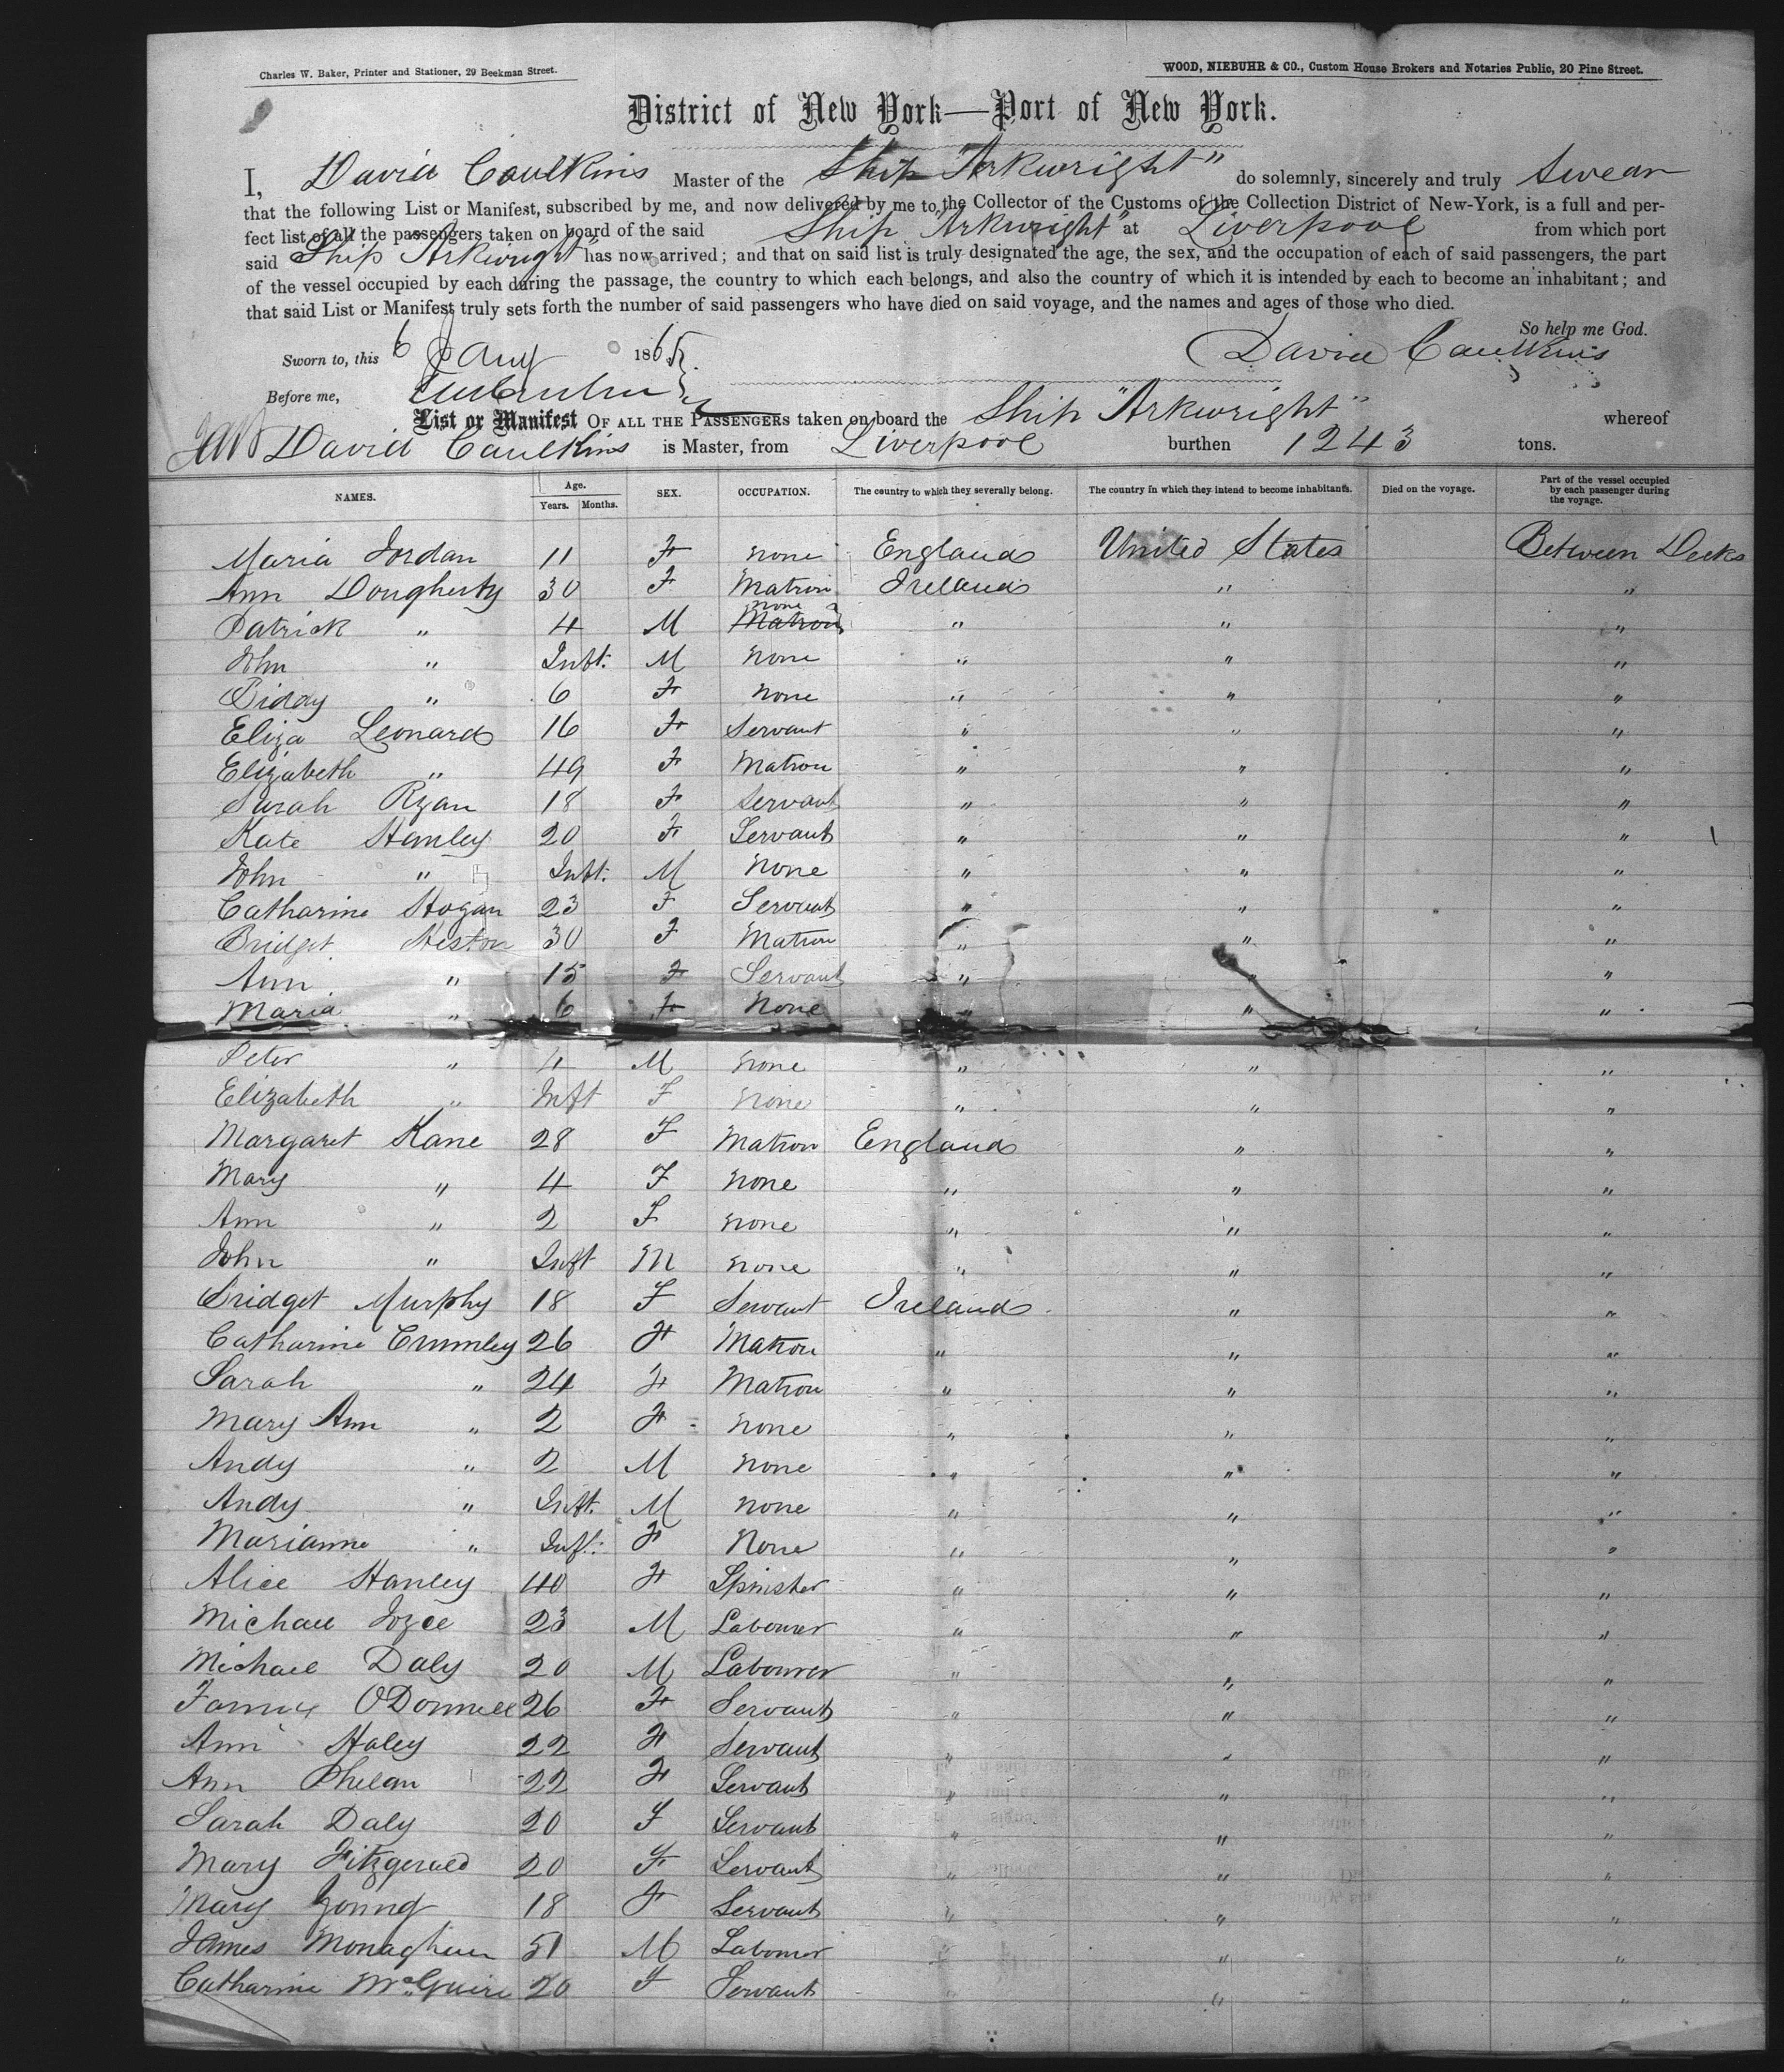 Charles W. Baker, Printer and Stationer, 29 Beekman Street.
WOOD, NIEBUHR & CO., Custom House Brokers and Notaries Public, 20 Pine Street.
District of New York—Port of New York.
I, David Caulkins Master of the Ship "Arkwright" do solemnly, sincerely and truly Swear
that the following List or Manifest, subscribed by me, and now delivered by me to the Collector of the Customs of the Collection District of New-York, is a full and per-
fect list of all the passengers taken on board of the said Ship "Arkwright" at Liverpool from which port
said Ship "Arkwright" has now arrived; and that on said list is truly designated the age, the sex, and the occupation of each of said passengers, the part
of the vessel occupied by each during the passage, the country to which each belongs, and also the country of which it is intended by each to become an inhabitant; and
that said List or Manifest truly sets forth the number of said passengers who have died on said voyage, and the names and ages of those who died.
So help me God.
Sworn to, this 6 Jany 1865 David Caulkins
Before me,
List or Manifest OF ALL THE PASSENGERS taken on board the Ship "Arkwright" whereof
David Caulkins is Master, from Liverpool burthen 1243 tons.
NAMES. Age. Years. Months. SEX. OCCUPATION. The country to which they severally belong. The country in which they intend to become inhabitants. Died on the voyage. Part of the vessel occupied by each passenger during the voyage.
Maria Jordan 11 F none England United States Between Decks
Ann Dougherty 30 F Matron Ireland " "
Patrick " 4 M Matron none " " "
John " Inft. M none " " "
Biddy " 6 F none " " "
Eliza Leonard 16 F Servant " " "
Elizabeth " 49 F Matron " " "
Sarah Ryan 18 F Servant " " "
Kate Hanley 20 F Servant " " "
John " Inft. M none " " "
Catharine Hogan 23 F Servant " " "
Bridget Heston 30 F Matron " " "
Ann " 15 F Servant " " "
Maria " 6 F None " " "
Peter " 4 M none " " "
Elizabeth " Inft F none " " "
Margaret Kane 28 F Matron England " "
Mary " 4 F none " " "
Ann " 2 F none " " "
John " Inft M none " " "
Bridget Murphy 18 F Servant Ireland " "
Catharine Crumley 26 F Matron " " "
Sarah " 24 F Matron " " "
Mary Ann " 2 F none " " "
Andy " 2 M none " " "
Andy " Inft. M none " " "
Marianne " Inft. F None " " "
Alice Hanley 40 F Spinster " " "
Michael Joyce 23 M Labourer " " "
Michael Daly 20 M Labourer " " "
Fannie O'Donnell 26 F Servant " " "
Ann Haley 22 F Servant " " "
Ann Phelan 22 F Servant " " "
Sarah Daly 20 F Servant " " "
Mary Fitzgerald 20 F Servant " " "
Mary Young 18 F Servant " " "
James Monaghan 51 M Labourer " " "
Catharine McGuire 20 F Servant " " "